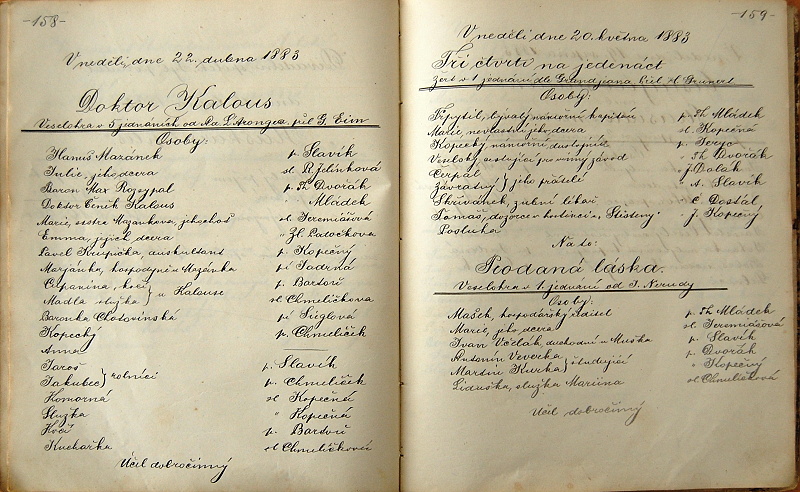 -158-
V neděli, dne 22. dubna 1883
Doktor Kalous
Veselohra v 5 jednáních od Ad. L'Arronge, přel. G. Eim
Osoby:
Hanuš Mazánek p. Slavík
Julie, jeho dcera sl. R. Jelínková
Baron Max Rozsypal p. Th. Dvořák
Doktor Čeněk Kalous " Mládek
Marie, sestra Mazánkova, jeho choť sl. Jeremiášová
Emma, jejich dcera " Zl. Látočkova
Pavel Krupička, auskultant p. Kopečný
Marjánka, hospodyně u Mazánka pí Jadrná
Cibanina, kočí } u Kalouse p. Bartoň
Madla služka sl. Chmelíčkova
Baronka Chotovinská pí Sieglová
Kopecký p. Chmelíček
Anna
Jaroš } rolníci p. Slavík
Jakubec p. Chmelíček
Komorná sl. Kopečná
Služka " Kopečná
Kočí p. Bartoň
Kuchařka sl. Chmelíčková
Účel dobročinný
-159-
V neděli, dne 20. května 1883
Tři čtvrti na jedenáct
Žert v 1 jednání dle Grandjeana, přel. H. Grünert
Osoby:
Trpytil, bývalý námořní kapitán p. Th. Mládek
Marie, nevlastní jeho dcera sl. Kopečná
Kopecký, námořní důstojník p.
Veselský, cestující pro vinný závod " Th. Dvořák
Čerpal } jeho přátelé " J. Dolák
Závratný " A. Slavík
Skřivánek, zubní lékař " Č. Dostal
Tomáš, dozorce v hostinci u " J. Kopečný
Posluha
Na to:
Prodaná láska.
Veselohra v 1 jednání od J. Nerudy
Osoby:
Mašek, hospodářský ředitel p. Th. Mládek
Marie, jeho dcera sl. Jeremiášová
Ivan Včelák, důchodní u Maška p. Slavík
Antonín Veverka } studující p. Dvořák
Martin Kurka " Kopečný
Liduška, služka Mariina sl. Chmelíčková
Účel dobročinný